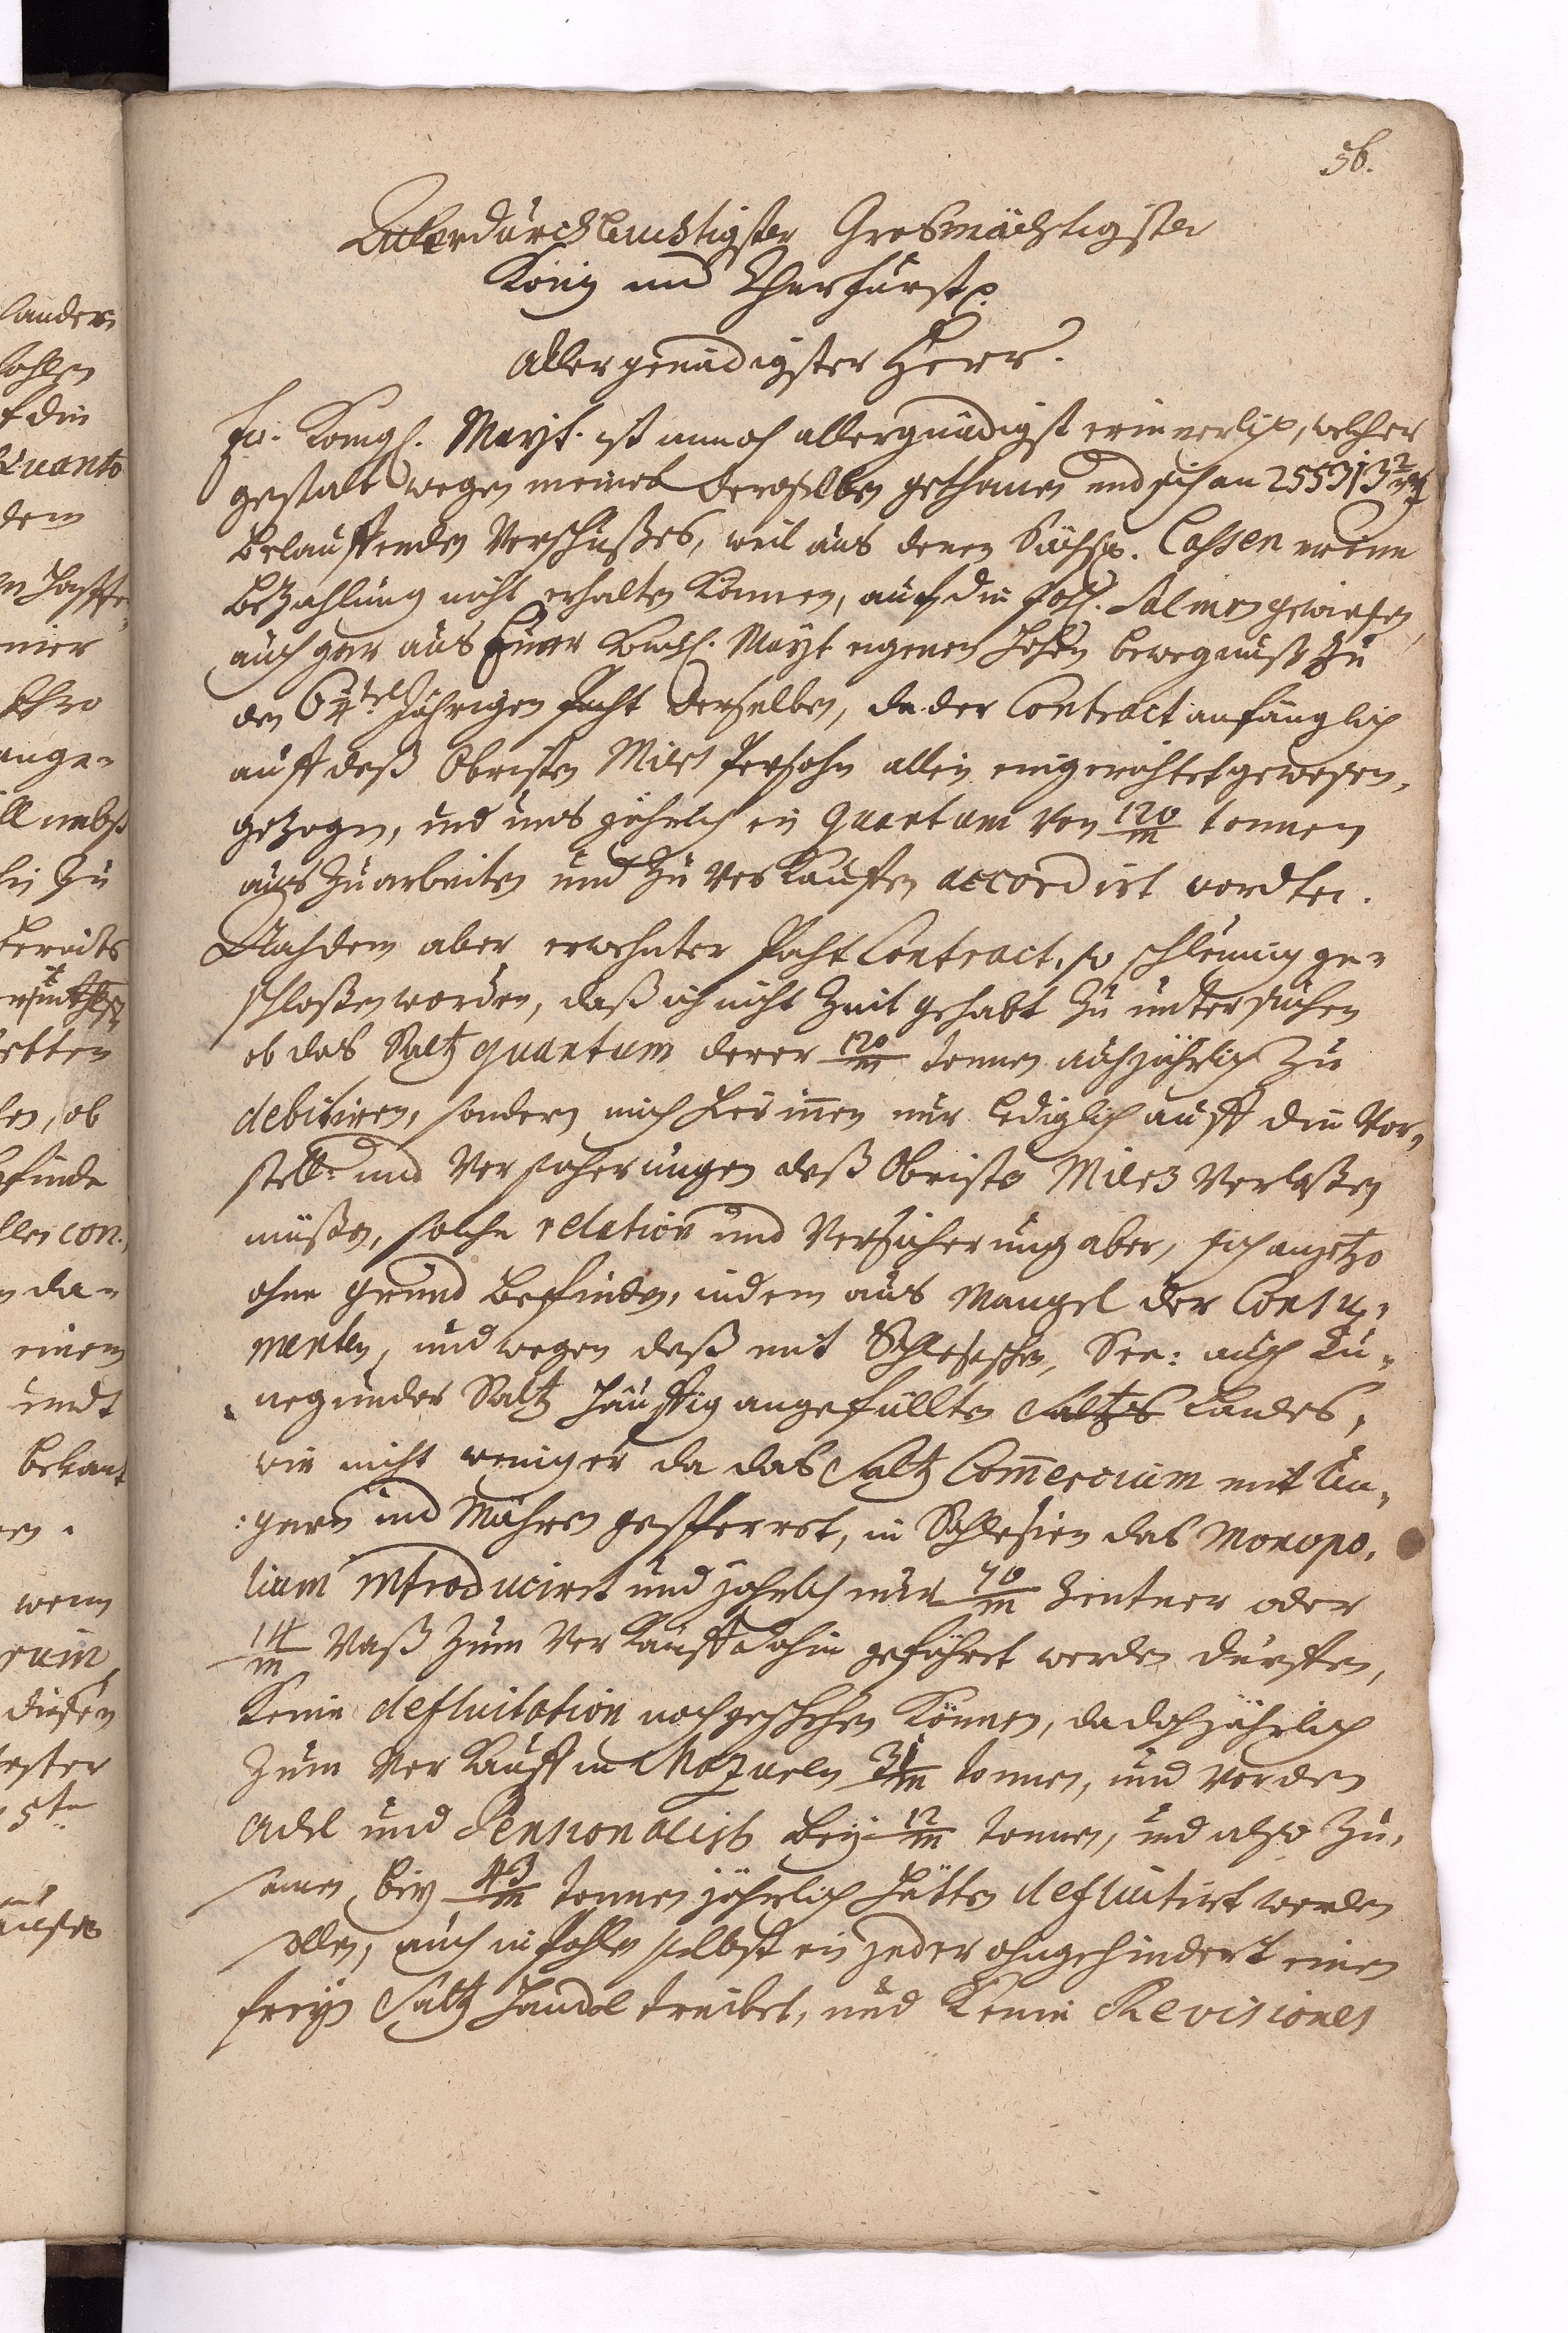 56.
Allerdurchlauchtigster Grosmächtigster
König und Churfürst p.
Allergnädigster Herr.
Ew. Königl. Mayt. ist annoch allergnädigst erinnerlich, welcher
gestalt wegen meines deroselben gethanen und sich an 255313
belauffenden Vorschußes, weil aus denen Sächß. Cassen meine
bezahlung nicht erhalten können, auf die Pohl. Salinen gewiesen,
auch gar aus Euer Königl. Mayt eigenen hohen bewegnüß zu
den 6 jährigen Pacht derselben, da der Contract anfänglich
auff deß Obristen Miers Persohn allein eingerichtet gewesen,
gezogen, und uns jährlich ein quantum von 120/m tonnen
aus zu arbeiten und zu verkauffen accordirt worden.
Nachdem aber erwehnter Pacht Contract, so schleunig ge-
schloßen worden, daß ich nicht Zeit gehabt zu untersuchen
ob das Saltz quantum derer 120/m tonnen auch jährlich zu
debitiren, sondern mich hierinnen nur lediglich auff die Vor-
stell: und Versicherungen deß Obrist Miers verlaßen
müßen, solche relation und Versicherung aber, sich anjetzo
ohne grund befinden, indem aus Mangel der Consu-
menten, und wegen deß mit Schlesischen, See: auch Cu-
negunder Saltz häuffig angefüllten Saltzes Landes,
wie nicht weniger da das Saltz Commercium mit Un-
:garn und Mähren gesperret, in Schlesien das Monopo-
lium introduciret und jährlich nur 70/m Zentner oder
14/m Vaß zum Verkauff dahin geführet werden dürffen,
keine defluitation noch geschehen können, da doch jährlich
zum Verkauff in 31/m tonnen, und vor den
Adel und bey 12/m tonnen, und also zu-
samen bey 43/m tonnen jährlich hätten defluitirt werden
sollen, auch in Pohlen selbst ein jeder ohngehindert einen
freyen Saltz Handel treibet, und keine Revisiones